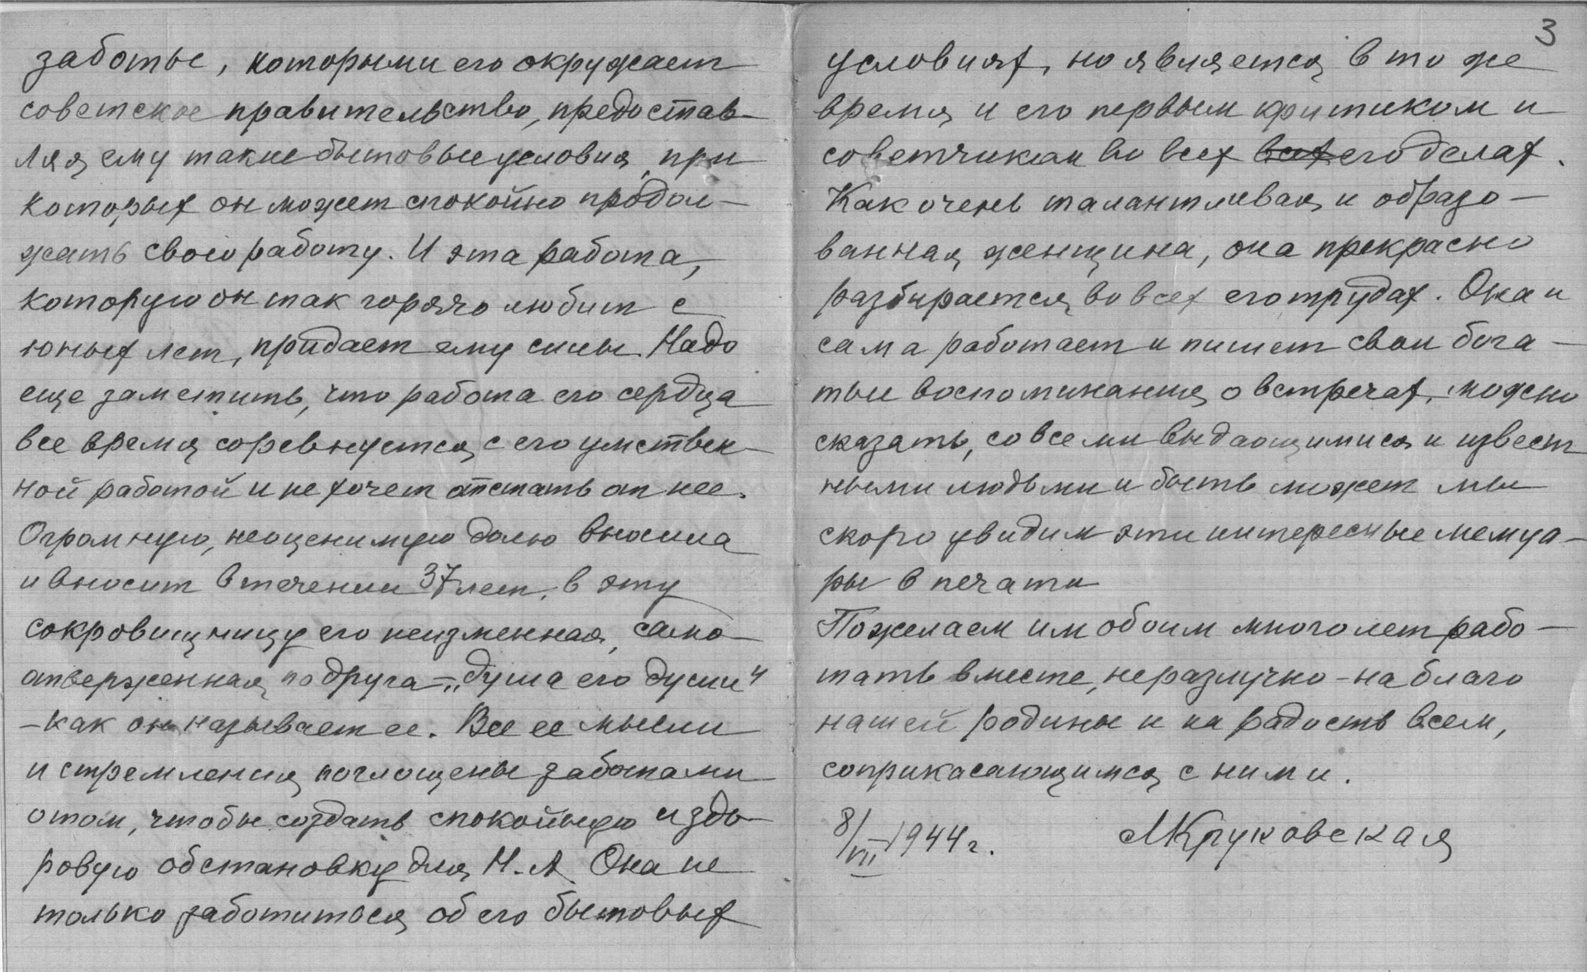 заботы, которыми его окружает
советское правительство, предостав-
ляя ему такие бытовые условия, при
которых он может спокойно продол-
жать свою работу. И эта работа,
которую он так горячо любит с
юных лет, придает ему силы. Надо
еще заметить, что работа его сердца
все время соревнуется с его умствен-
ной работой и не хочет отстать от нее.
Огромную, неоценимую долю вносила
и вносит в течении 37 лет, в эту
сокровищницу его неизменная, само-
отверженная подруга – „душа его души"
– как он называет ее. Все ее мысли
и стремления поглощены заботами
о том, чтобы создать спокойную и здо-
ровую обстановку для Н. А. Она не
только заботиться об его бытовых
3
условиях, но является в то же
время и его первым критиком и
советчиком во всех всех его делах.
Как очень талантливая и образо-
ванная женщина, она прекрасно
разбирается во всех его трудах. Она и
сама работает и пишет свои бога-
тые воспоминания о встречах, можно
сказать, со всеми выдающимися и извест
ными людьми и быть может мы
скоро увидим эти интересные мемуа-
ры в печати
Пожелаем им обоим много лет рабо-
тать вместе, неразлучно – на благо
нашей родины и на радость всем,
соприкасающимся с ними.
8/VII 1944 г. МКруковская